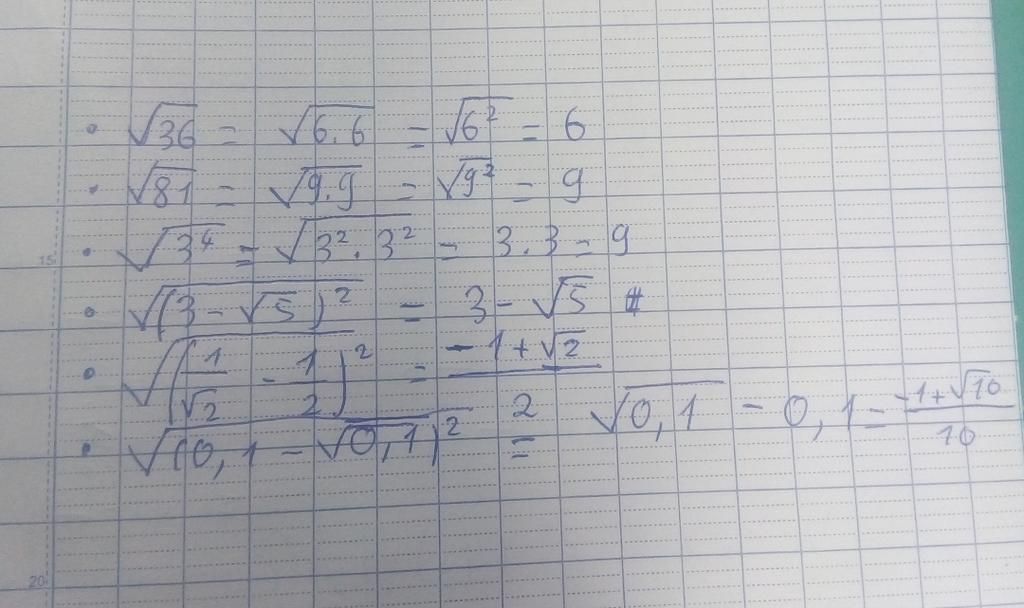 • √36 = √(6.6) = √(6²) = 6
• √81 = √(9.9) = √(9²) = 9
• √(3⁴) = √(3².3²) = 3.3 = 9
15
• √((3 - √5)²) = 3 - √5 #
• √((1/√2 - 1/2)²) = (-1+√2)/2
• √((0,1 - √0,1)²) = √0,1 - 0,1 = (-1+√10)/10
20